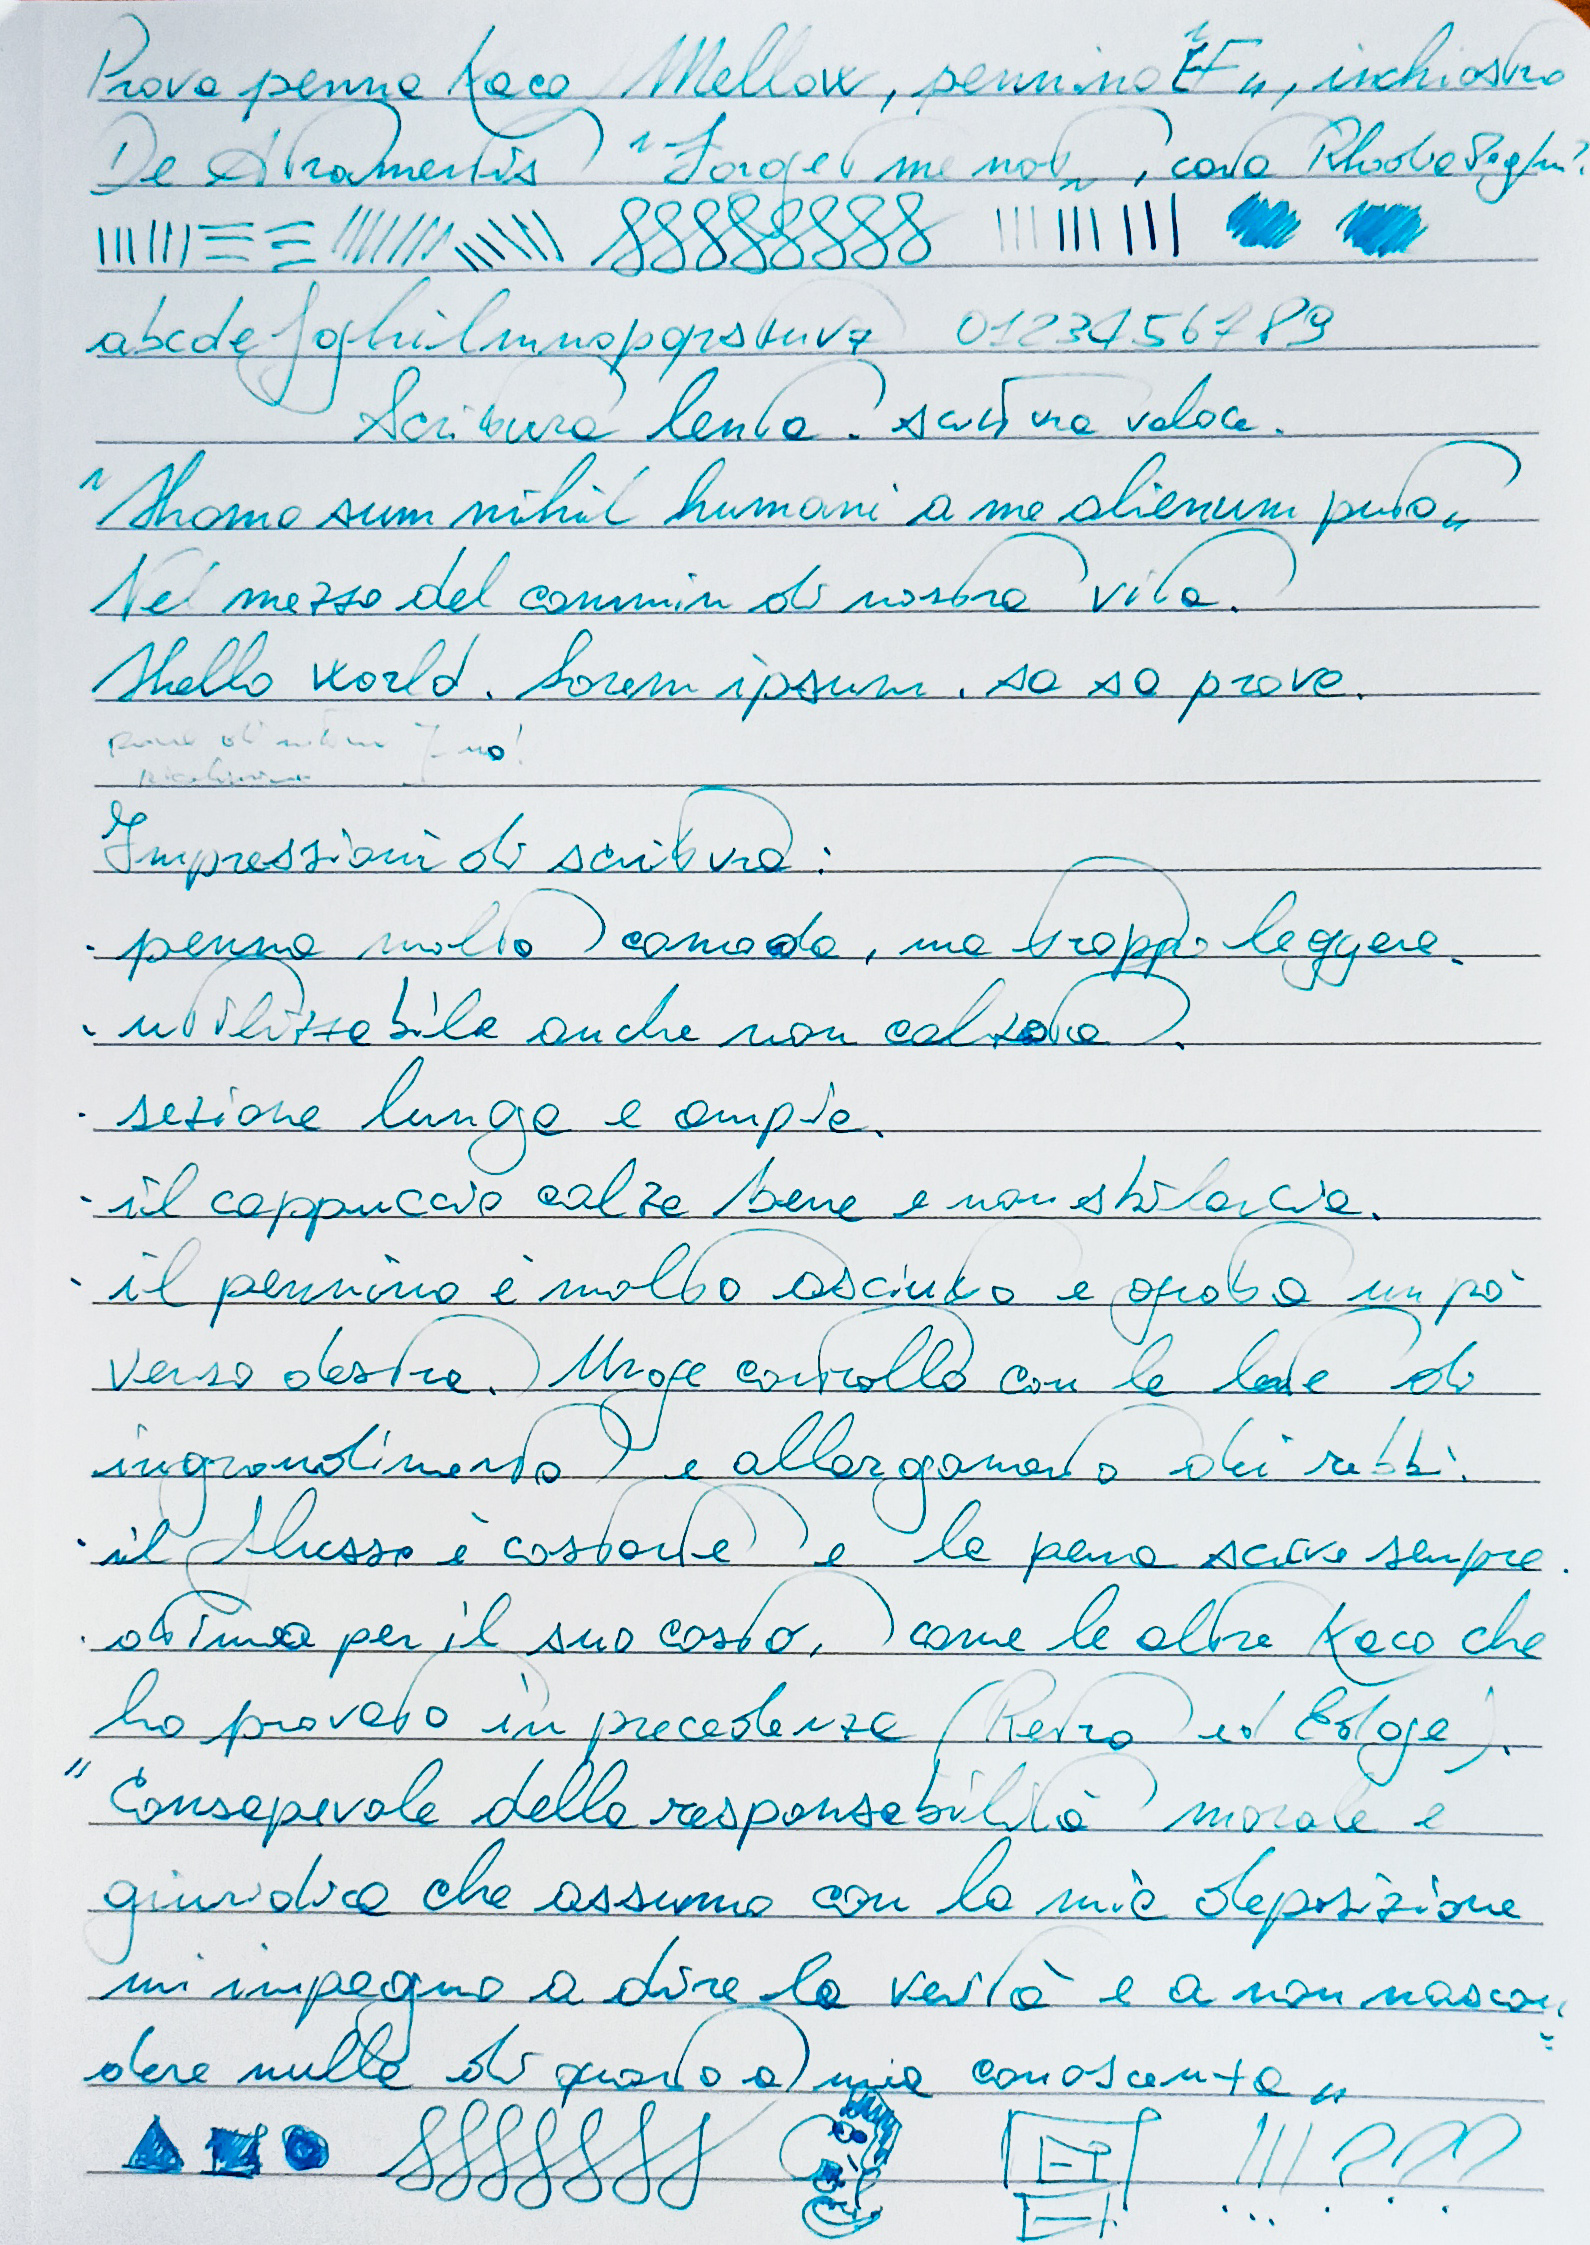 Prova penna Kaco Mellow, pennino "EF", inchiostro
De Atramentis "Forget me not", carta Rhodia
abcdefghilmnopqrstuvz 0123456789
Scrittura lenta. scrittura veloce.
"Homo sum nihil humani a me alienum puto"
Nel mezzo del cammin di nostra vita.
Hello world. Lorem ipsum. sa sa prova.
no!
Impressioni di scrittura:
. penna molto comoda, ma troppo leggera.
. utilizzabile anche non calzata.
. sezione lunga e ampia.
. il cappuccio calza bene e non sbilancia.
. il pennino è molto asciutto e gratta un pò
verso destra. Urge controllo con la lente di
ingrandimento e allargamento dei rebbi.
. il flusso è costante e la penna scrive sempre.
. ottima per il suo costo, come le altre Kaco che
ho provato in precedenza (Retro ed Edge).
"Consapevole della responsabilità morale e
giuridica che assumo con la mia deposizione
mi impegno a dire la verità e a non nascon
dere nulla di quanto a mia conoscenza"
!!! ???